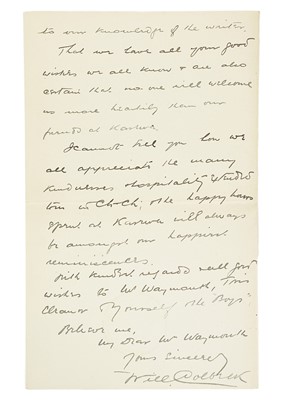 to our knowledge of the writer.
That we have all your good
wishes we all know & are also
certain that no one will welcome
us more heartily than our
friends at Karewa.
I cannot tell you how we
all appreciate the many
kindnesses & hospitality extended
to us in Ch-Ch; & the happy hours
spent at Karewa will always
be amongst our happiest
reminiscences.
With kindest regards & all good
wishes to Mr Waymouth, Miss
Eleanor & Yourself & the Boys
Believe me,
My Dear Mrs Waymouth
Yours Sincerely
Will. Colbeck